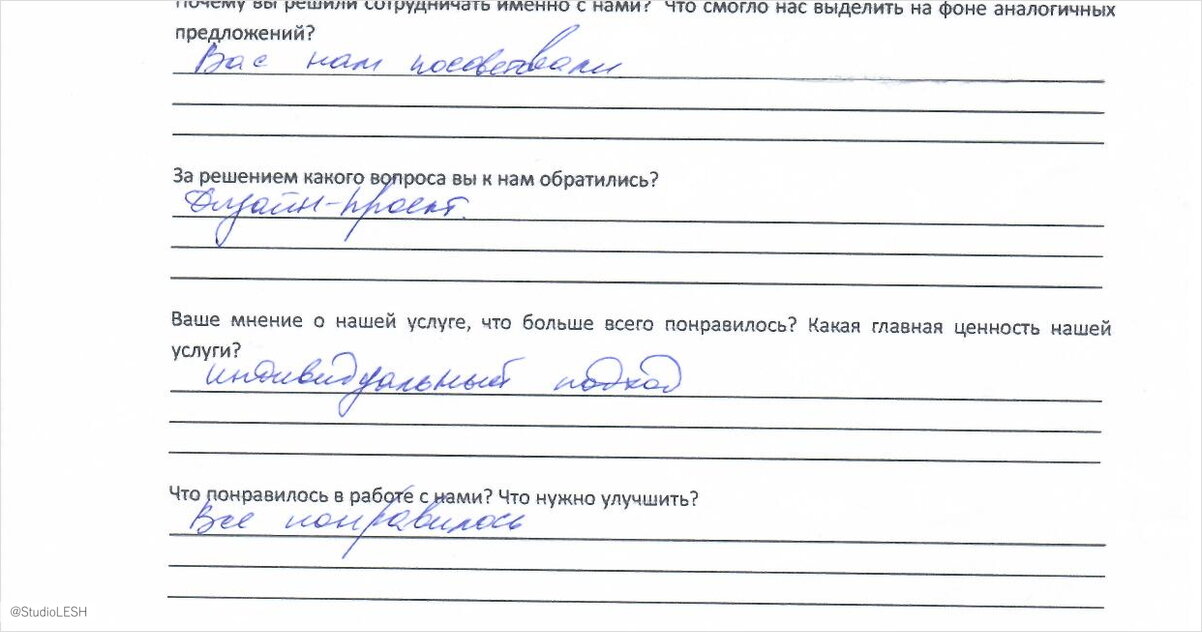 Почему вы решили сотрудничать именно с нами? Что смогло нас выделить на фоне аналогичных
предложений?
Вас нам посоветовали
За решением какого вопроса вы к нам обратились?
Дизайн-проект.
Ваше мнение о нашей услуге, что больше всего понравилось? Какая главная ценность нашей
услуги?
индивидуальный подход
Что понравилось в работе с нами? Что нужно улучшить?
Все понравилось
@StudioLESH